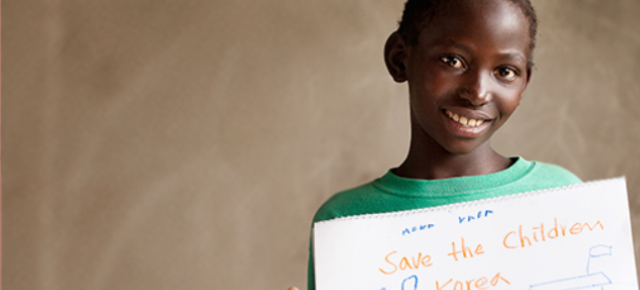 Save the Children
Korea